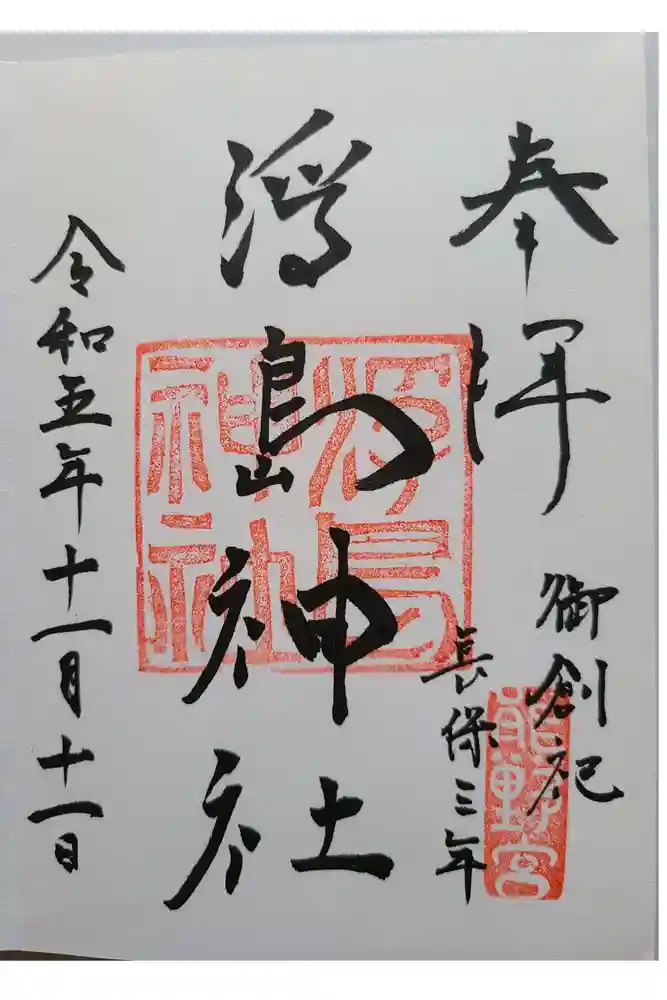 奉拝
御創祀
長保三年
浮島神社
令和五年十一月十一日
浮島神社
熊野宮